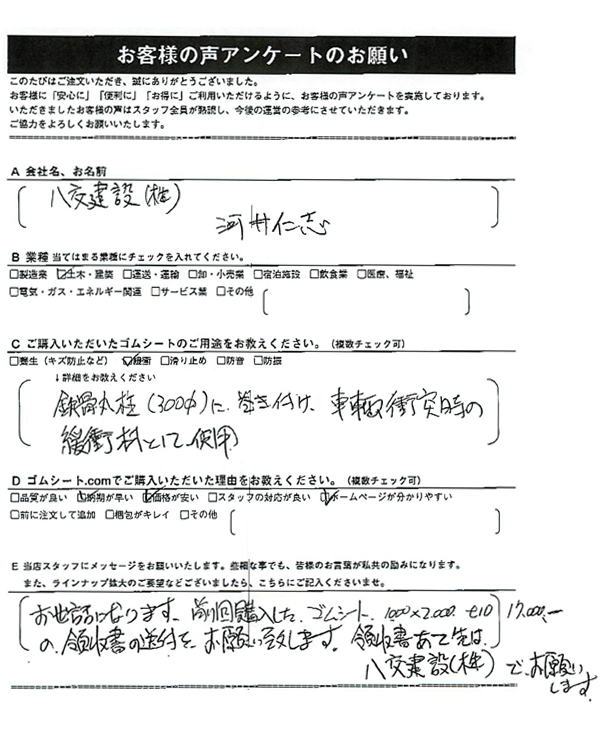 お客様の声アンケートのお願い
このたびはご注文いただき、誠にありがとうございました。
お客様に「安心に」「便利に」「お得に」ご利用いただけるように、お客様の声アンケートを実施しております。
いただきましたお客様の声はスタッフ全員が熟読し、今後の運営の参考にさせていただきます。
ご協力をよろしくお願いいたします。
A 会社名、お名前
八交建設(株)
河州仁志
B 業種 当てはまる業種にチェックを入れてください。
□製造業 ☑土木・建築 □運送・運輸 □卸・小売業 □宿泊施設 □飲食業 □医療、福祉
□電気・ガス・エネルギー関連 □サービス業 □その他
C ご購入いただいたゴムシートのご用途をお教えください。(複数チェック可)
□養生(キズ防止など) ☑緩衝 □滑り止め □防音 □防振
↓詳細をお教えください
鉄骨丸柱(300Φ)に、巻き付け、車輌の衝突時の
緩衝材として、使用
D ゴムシート.comでご購入いただいた理由をお教えください。(複数チェック可)
□品質が良い ☑納期が早い ☑価格が安い □スタッフの対応が良い ☑ホームページが分かりやすい
□前に注文して追加 □梱包がキレイ □その他
E 当店スタッフにメッセージをお願いいたします。些細な事でも、皆様のお言葉が私共の励みになります。
また、ラインナップ拡大のご要望などございましたら、こちらにご記入くださいませ。
お世話になります、前回購入した、ゴムシート、1000×2000 t10 17,000,-
の、領収書の送付を、お願い致します。領収書あて先は、
八交建設(株)で、お願い
します。